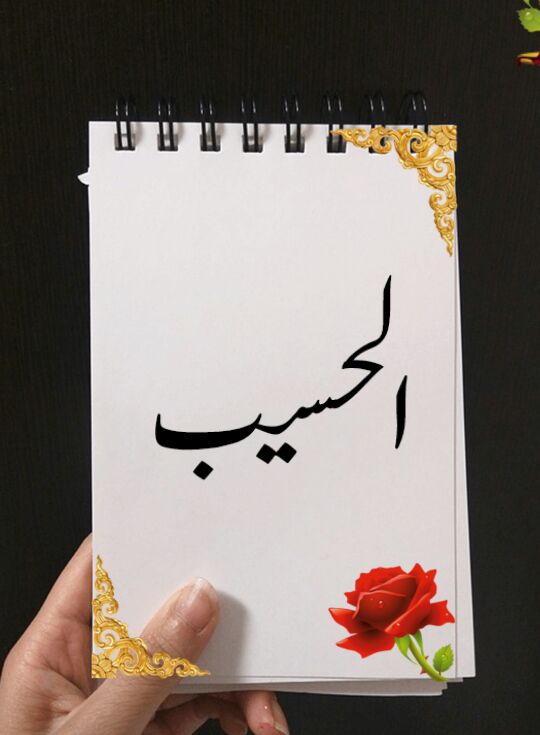 الحسيب